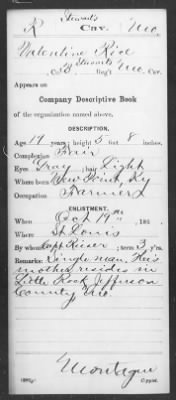 Stewart's
R Cav. Mo.
Valentine Rice
Co. B, Stewart's Reg't Mo. Cav.
Appears on
Company Descriptive Book
of the organization named above.
DESCRIPTION.
Age 19 years; height 5 feet 8 inches.
Complexion Fair
Eyes Gray; hair Light
Where born New Point, Ky
Occupation Farmer
ENLISTMENT.
When Oct 19th, 186
Where St. Louis
By whom Capt; term 3 y'rs.
Remarks: Single man. His
mother resides in
Little Rock Jefferson
County, Mo.
Montague
Copyist.